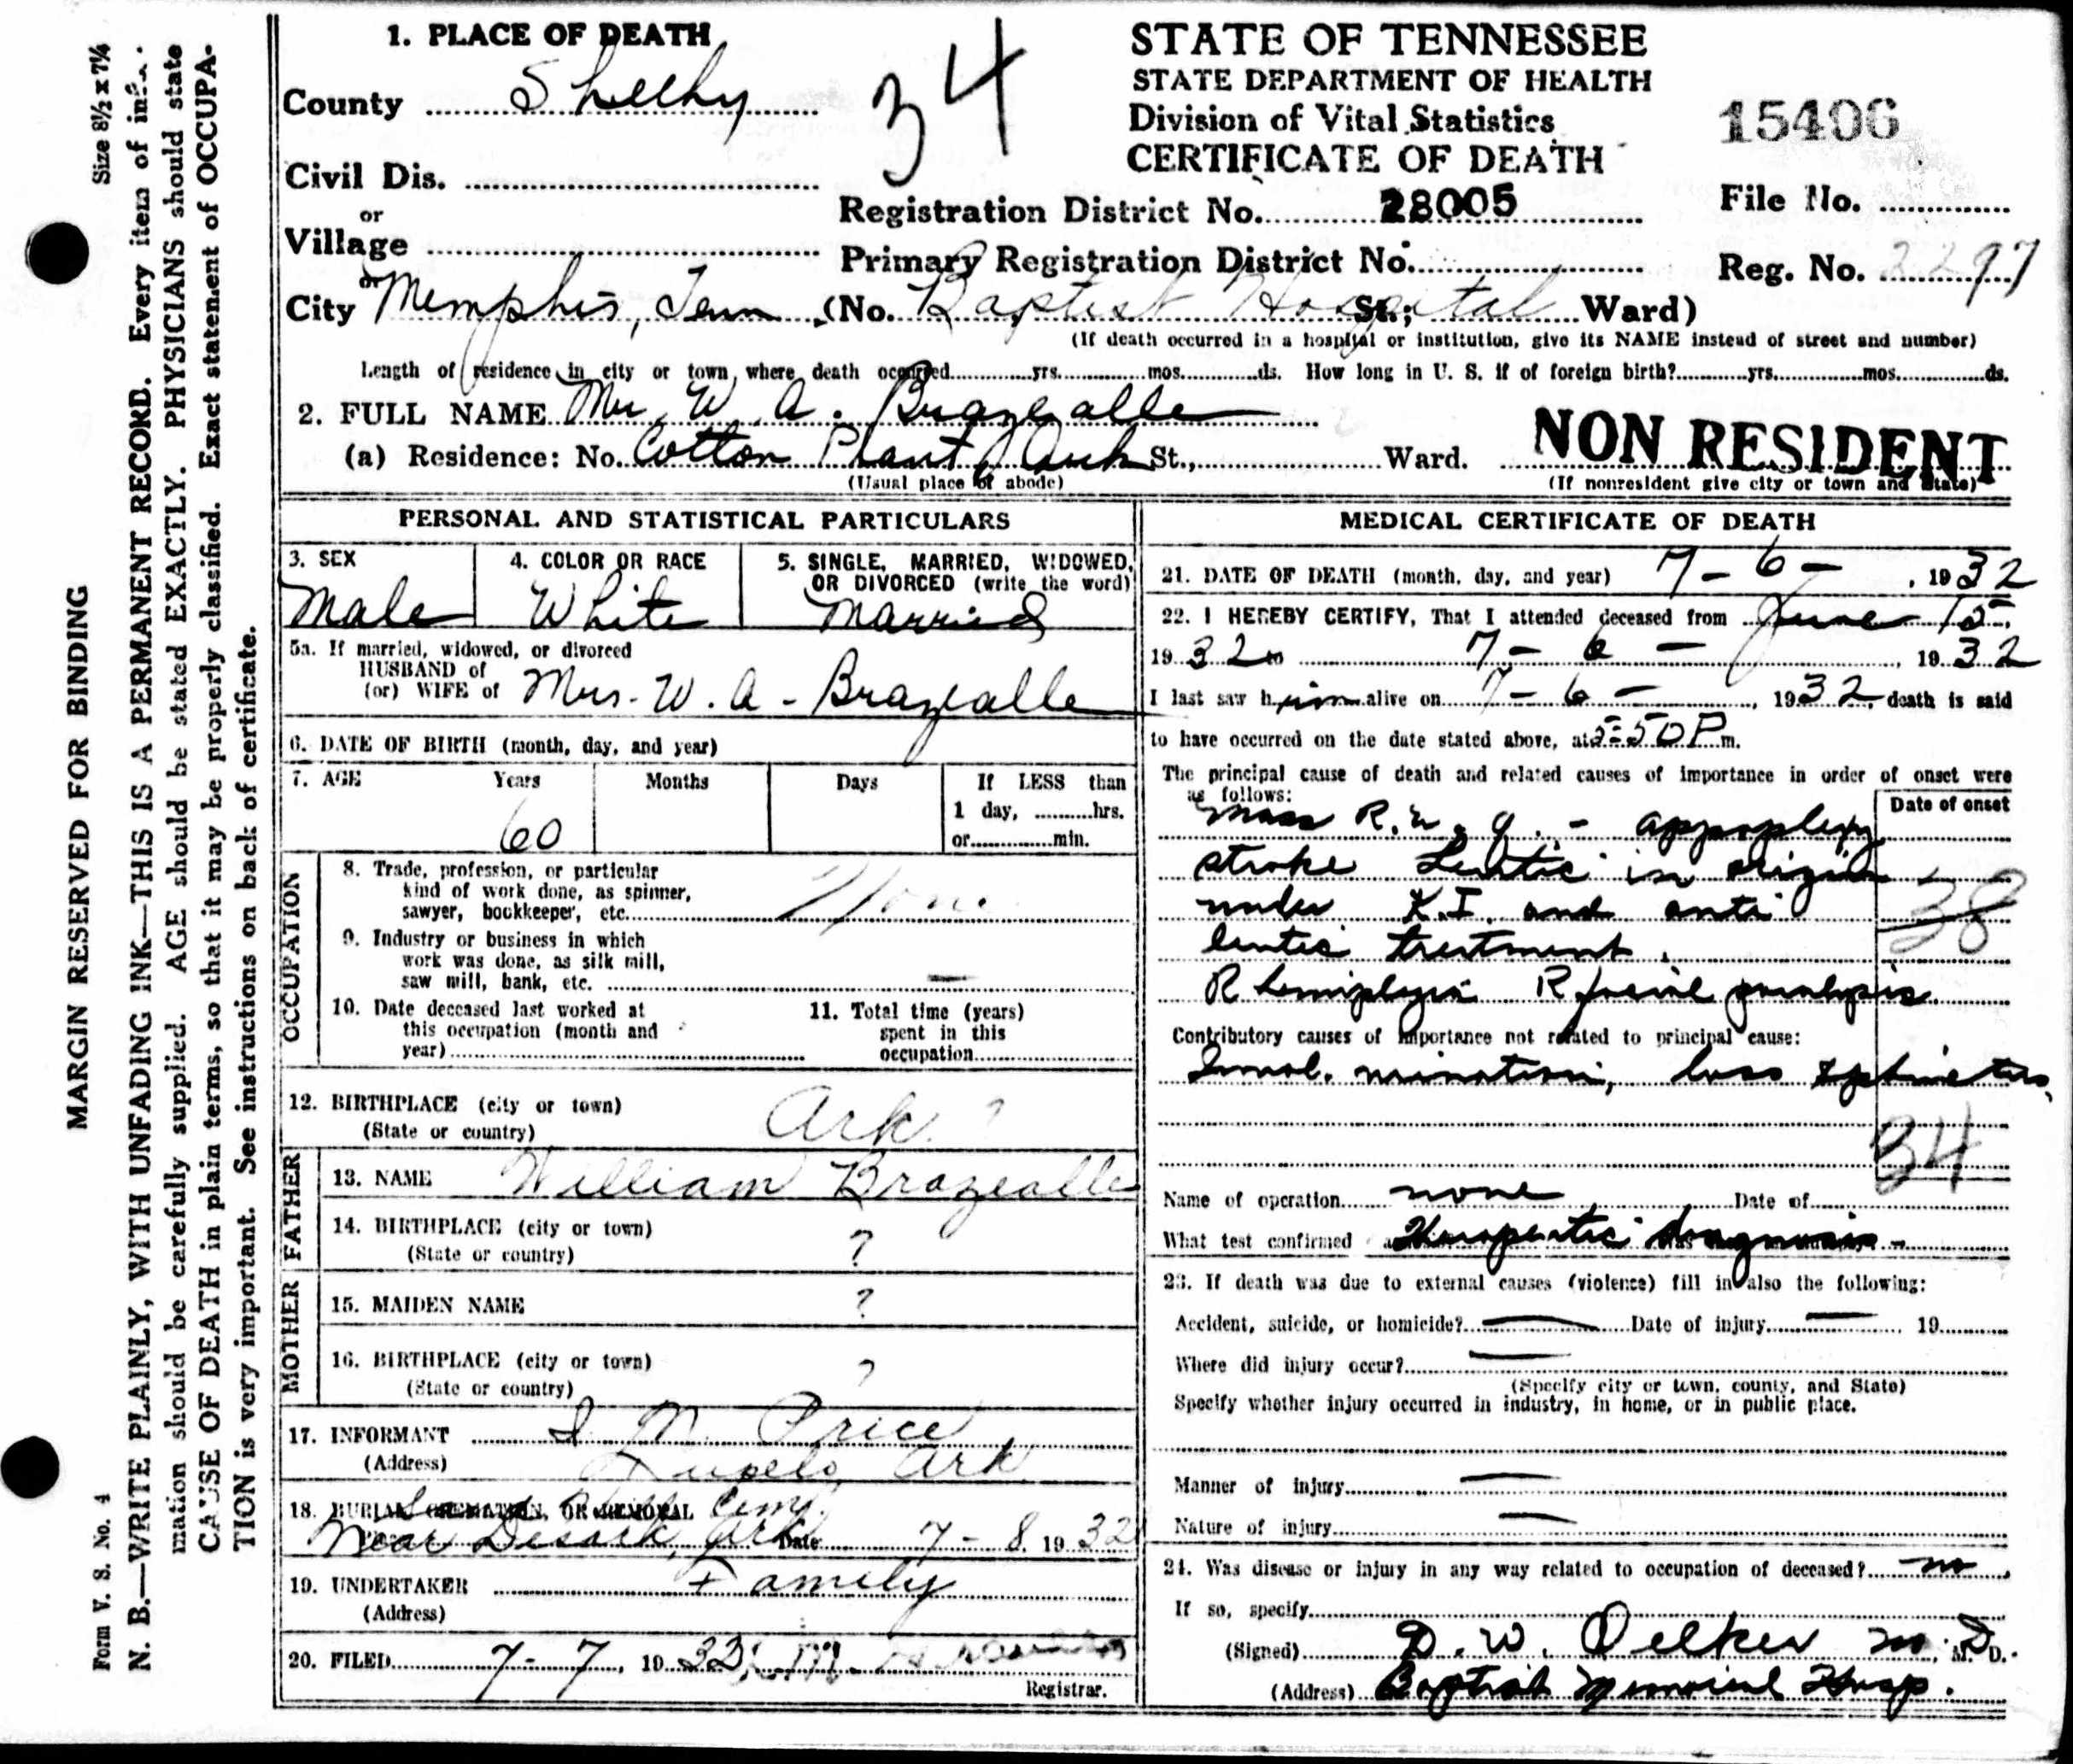 Size 8½ x 7¼
MARGIN RESERVED FOR BINDING
N. B.—WRITE PLAINLY, WITH UNFADING INK—THIS IS A PERMANENT RECORD. Every item of infor-
mation should be carefully supplied. AGE should be stated EXACTLY. PHYSICIANS should state
CAUSE OF DEATH in plain terms, so that it may be properly classified. Exact statement of OCCUPA-
TION is very important. See instructions on back of certificate.
Form V. S. No. 4
1. PLACE OF DEATH
County Shelby
34
Civil Dis.
or
Village
or
City Memphis, Tenn (No. Baptist Hospital St.; Ward)
(If death occurred in a hospital or institution, give its NAME instead of street and number)
STATE OF TENNESSEE
STATE DEPARTMENT OF HEALTH
Division of Vital Statistics
CERTIFICATE OF DEATH
15406
Registration District No. 28005
File No.
Primary Registration District No.
Reg. No. 2297
Length of residence in city or town where death occurred yrs. mos. ds. How long in U. S. if of foreign birth? yrs. mos. ds.
2. FULL NAME Mr. W. A. Brazealle
(a) Residence: No. Cotton Plant, Ark St., Ward. NON RESIDENT
(Usual place of abode) (If nonresident give city or town and State)
PERSONAL AND STATISTICAL PARTICULARS
3. SEX
Male
4. COLOR OR RACE
White
5. SINGLE, MARRIED, WIDOWED,
OR DIVORCED (write the word)
Married
5a. If married, widowed, or divorced
HUSBAND of
(or) WIFE of Mrs. W. A. Brazealle
6. DATE OF BIRTH (month, day, and year)
7. AGE Years Months Days If LESS than
1 day, hrs.
60 or min.
OCCUPATION
8. Trade, profession, or particular
kind of work done, as spinner,
sawyer, bookkeeper, etc. None
9. Industry or business in which
work was done, as silk mill,
saw mill, bank, etc. —
10. Date deceased last worked at
this occupation (month and
year)
11. Total time (years)
spent in this
occupation
12. BIRTHPLACE (city or town)
(State or country) Ark. ?
FATHER
13. NAME William Brazealle
14. BIRTHPLACE (city or town)
(State or country) ?
MOTHER
15. MAIDEN NAME ?
16. BIRTHPLACE (city or town)
(State or country) ?
17. INFORMANT M. Price
(Address) Tupelo, Ark
18. BURIAL, CREMATION, OR REMOVAL Cem.
Near Desark, Ark Date 7-8 1932
19. UNDERTAKER Family
(Address)
20. FILED 7-7, 1932
Registrar.
MEDICAL CERTIFICATE OF DEATH
21. DATE OF DEATH (month, day, and year) 7-6-, 1932
22. I HEREBY CERTIFY, That I attended deceased from June 15,
1932 to 7-6-, 1932
I last saw him alive on 7-6-, 1932, death is said
to have occurred on the date stated above, at 5:50 P m.
The principal cause of death and related causes of importance in order of onset were
as follows:
Date of onset
Mass - appoplexy
stroke Leutic in origin
under K.I. and anti
leutic treatment.
38
R hemiplegia R facial paralysis
Contributory causes of importance not related to principal cause:
Invol. urination, loss sphincters
34
Name of operation none Date of
What test confirmed Therapeutic diagnosis -
23. If death was due to external causes (violence) fill in also the following:
Accident, suicide, or homicide? — Date of injury — 19
Where did injury occur? —
(Specify city or town, county, and State)
Specify whether injury occurred in industry, in home, or in public place.
Manner of injury —
Nature of injury —
24. Was disease or injury in any way related to occupation of deceased? no
If so, specify
(Signed) D. W. Oelker M.D. M. D.
(Address) Baptist Memorial Hosp.